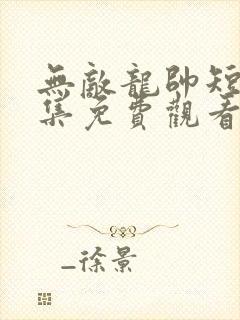 無敵龍帥短
集免費觀看
_徐景